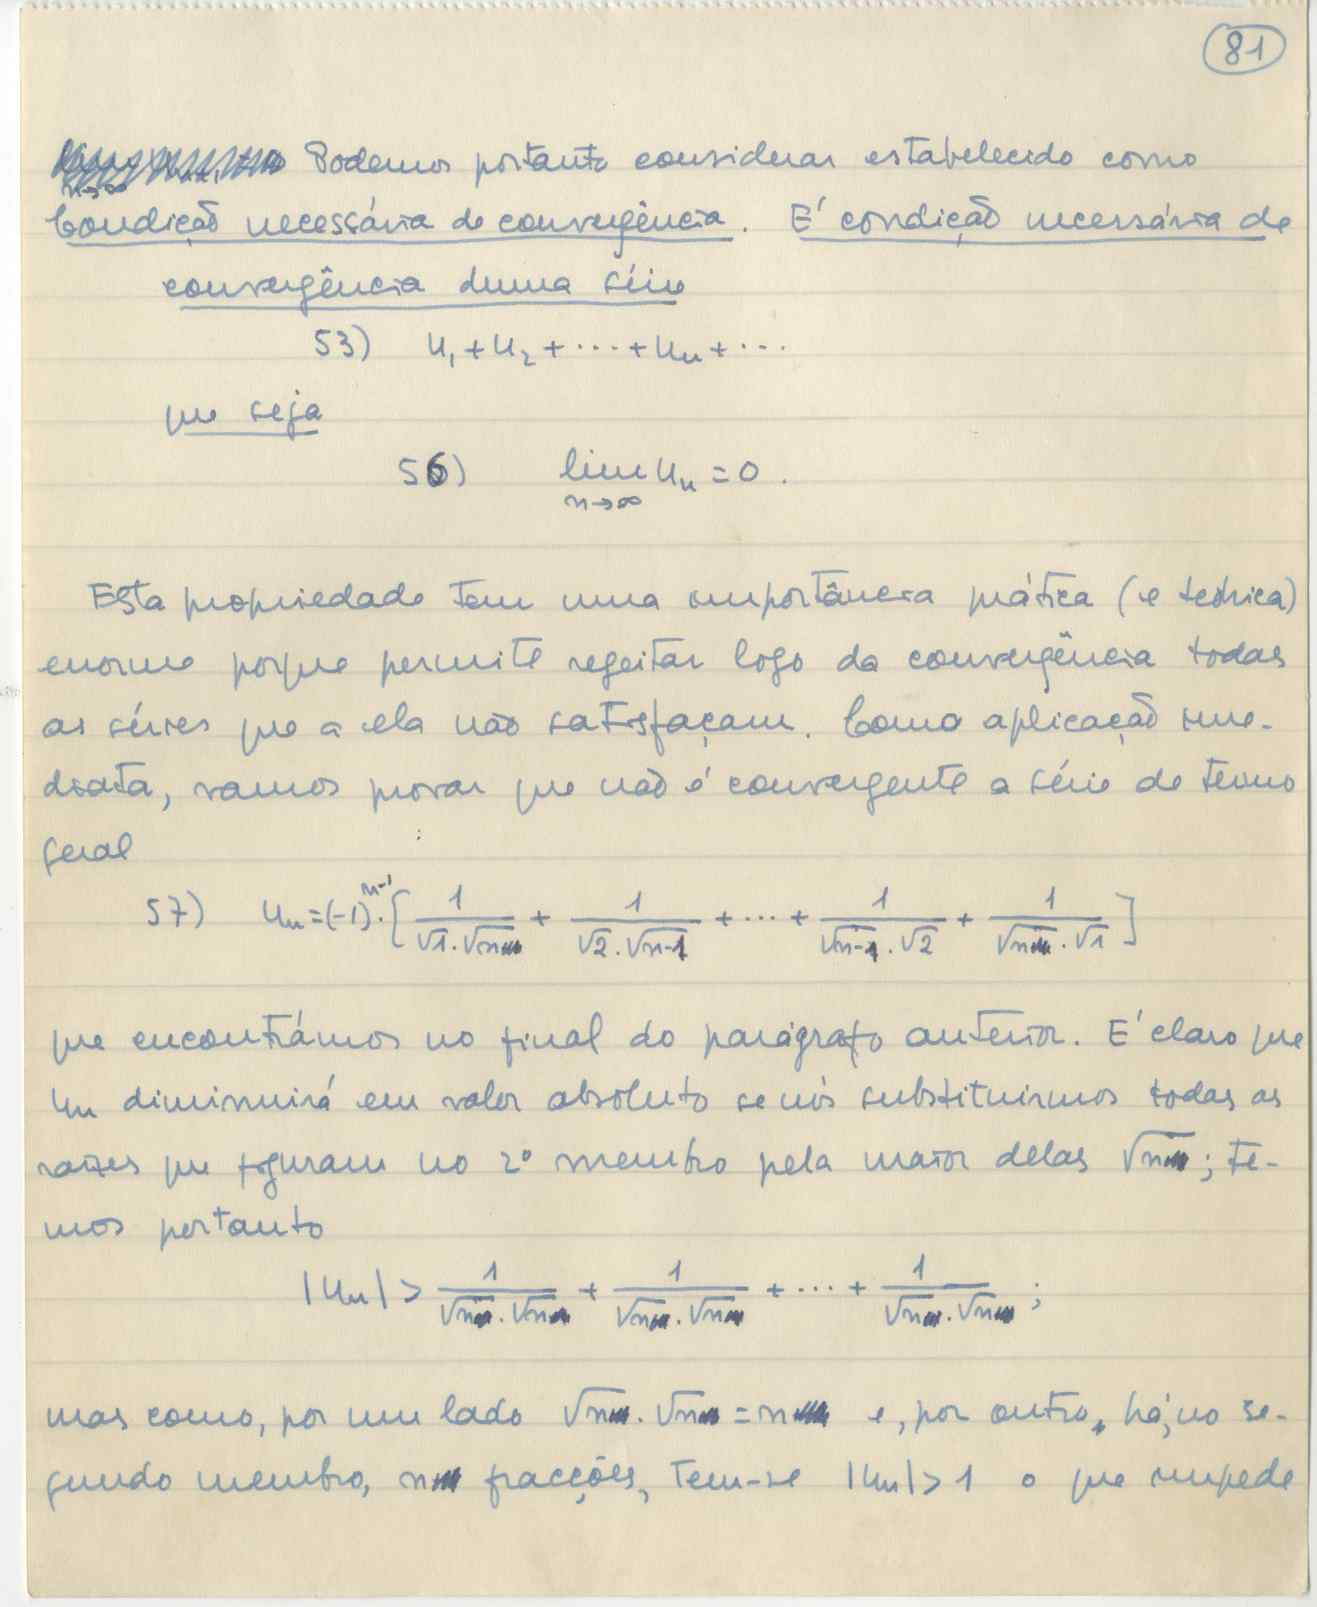 81
Podemos portanto considerar estabelecido como
Condição necessária de convergência. É condição necessária de
convergência duma série
53) u₁ + u₂ + ··· + uₙ + ···
que seja
56) lim uₙ = 0.
n→∞
Esta propriedade tem uma importância prática (e teórica)
enorme porque permite regeitar logo da convergência todas
as séries que a ela não satisfaçam. Como aplicação ime-
diata, vamos provar que não é convergente a série de termo
geral
57) uₙ = (-1)ⁿ⁻¹·[1/(√1·√n) + 1/(√2·√n-1) + ··· + 1/(√n-1·√2) + 1/(√n·√1)]
que encontrámos no final do parágrafo anterior. É claro que
uₙ diminuirá em valor absoluto se nós substituirmos todas as
raízes que figuram no 2º membro pela maior delas √n; te-
mos portanto
|uₙ| > 1/(√n·√n) + 1/(√n·√n) + ··· + 1/(√n·√n);
mas como, por um lado √n·√n = n e, por outro, há, no se-
gundo membro, n fracções, tem-se |uₙ| > 1 o que impede